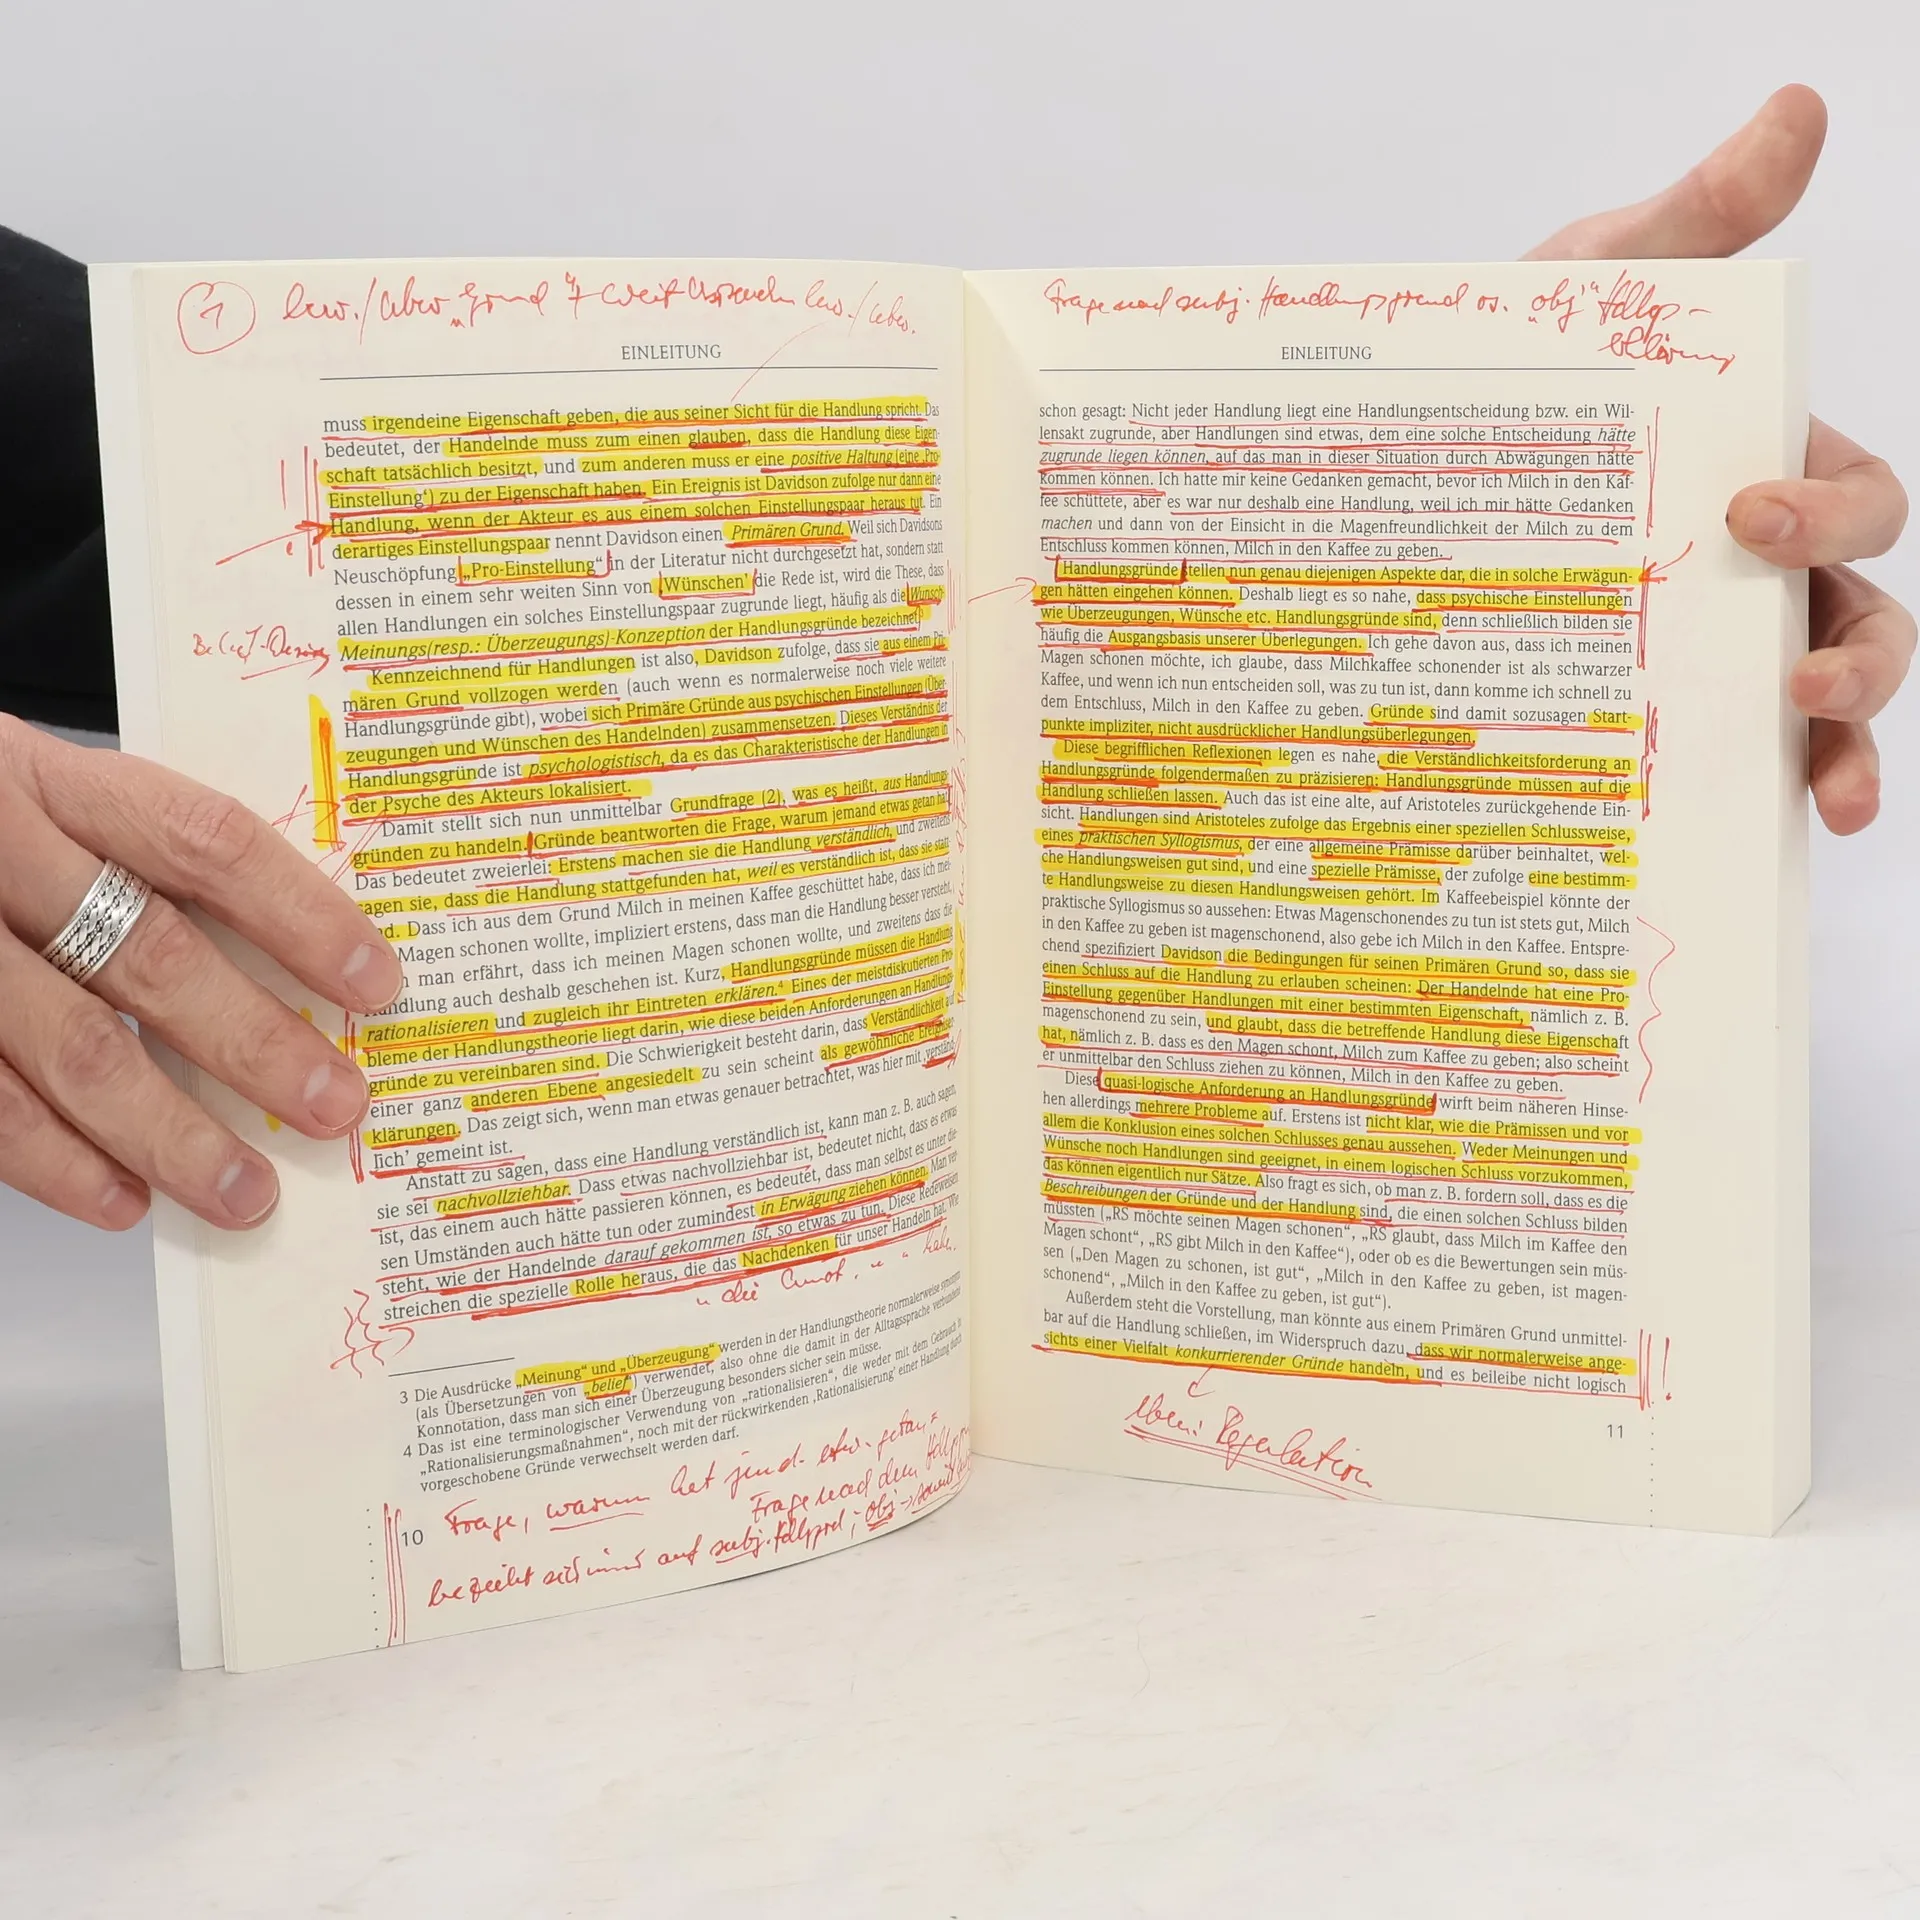 1
EINLEITUNG
muss irgendeine Eigenschaft geben, die aus seiner Sicht für die Handlung spricht. Das
bedeutet, der Handelnde muss zum einen glauben, dass die Handlung diese Eigen-
schaft tatsächlich besitzt, und zum anderen muss er eine positive Haltung (eine ‚Pro-
Einstellung‘) zu der Eigenschaft haben. Ein Ereignis ist Davidson zufolge nur dann eine
Handlung, wenn der Akteur es aus einem solchen Einstellungspaar heraus tut. Ein
derartiges Einstellungspaar nennt Davidson einen Primären Grund. Weil sich Davidsons
Neuschöpfung „Pro-Einstellung“ in der Literatur nicht durchgesetzt hat, sondern statt
dessen in einem sehr weiten Sinn von ‚Wünschen‘ die Rede ist, wird die These, dass
allen Handlungen ein solches Einstellungspaar zugrunde liegt, häufig als die Wunsch-
Belief-Desire
Meinungs(resp.: Überzeugungs)-Konzeption der Handlungsgründe bezeichnet³
Kennzeichnend für Handlungen ist also, Davidson zufolge, dass sie aus einem Pri-
mären Grund vollzogen werden (auch wenn es normalerweise noch viele weitere
Handlungsgründe gibt), wobei sich Primäre Gründe aus psychischen Einstellungen (Über-
zeugungen und Wünschen des Handelnden) zusammensetzen. Dieses Verständnis der
Handlungsgründe ist psychologistisch, da es das Charakteristische der Handlungen in
der Psyche des Akteurs lokalisiert.
Damit stellt sich nun unmittelbar Grundfrage (2), was es heißt, aus Handlungs-
gründen zu handeln. Gründe beantworten die Frage, warum jemand etwas getan hat.
Das bedeutet zweierlei: Erstens machen sie die Handlung verständlich, und zweitens
sagen sie, dass die Handlung stattgefunden hat, weil es verständlich ist, dass sie statt
Dass ich aus dem Grund Milch in meinen Kaffee geschüttet habe, dass ich mei-
Magen schonen wollte, impliziert erstens, dass man die Handlung besser versteht,
man erfährt, dass ich meinen Magen schonen wollte, und zweitens dass die
Handlung auch deshalb geschehen ist. Kurz, Handlungsgründe müssen die Handlung
rationalisieren und zugleich ihr Eintreten erklären.⁴ Eines der meistdiskutierten Pro-
bleme der Handlungstheorie liegt darin, wie diese beiden Anforderungen an Handlungs-
gründe zu vereinbaren sind. Die Schwierigkeit besteht darin, dass Verständlichkeit auf
einer ganz anderen Ebene angesiedelt zu sein scheint als gewöhnliche Ereigniser-
klärungen. Das zeigt sich, wenn man etwas genauer betrachtet, was hier mit ‚verständ-
lich‘ gemeint ist.
Anstatt zu sagen, dass eine Handlung verständlich ist, kann man z. B. auch sagen,
sie sei nachvollziehbar. Dass etwas nachvollziehbar ist, bedeutet nicht, dass es etwas
ist, das einem auch hätte passieren können, es bedeutet, dass man selbst es unter die-
sen Umständen auch hätte tun oder zumindest in Erwägung ziehen können. Man ver-
steht, wie der Handelnde darauf gekommen ist, so etwas zu tun. Diese Redeweisen
streichen die spezielle Rolle heraus, die das Nachdenken für unser Handeln hat. Wie
3 Die Ausdrücke „Meinung“ und „Überzeugung“ werden in der Handlungstheorie normalerweise synonym
(als Übersetzungen von „belief“) verwendet, also ohne die damit in der Alltagssprache verbundene
Konnotation, dass man sich einer Überzeugung besonders sicher sein müsse.
4 Das ist eine terminologische Verwendung von „rationalisieren“, die weder mit dem Gebrauch in
„Rationalisierungsmaßnahmen“, noch mit der rückwirkenden ‚Rationalisierung‘ einer Handlung durch
vorgeschobene Gründe verwechselt werden darf.
Frage, warum hat jmd. etw. getan =
Frage nach dem
10
bezieht sich auf subj.
Frage nach subj. Handlungsgrund vs. „obj“
EINLEITUNG
schon gesagt: Nicht jeder Handlung liegt eine Handlungsentscheidung bzw. ein Wil-
lensakt zugrunde, aber Handlungen sind etwas, dem eine solche Entscheidung hätte
zugrunde liegen können, auf das man in dieser Situation durch Abwägungen hätte
kommen können. Ich hatte mir keine Gedanken gemacht, bevor ich Milch in den Kaf-
fee schüttete, aber es war nur deshalb eine Handlung, weil ich mir hätte Gedanken
machen und dann von der Einsicht in die Magenfreundlichkeit der Milch zu dem
Entschluss kommen können, Milch in den Kaffee zu geben.
Handlungsgründe stellen nun genau diejenigen Aspekte dar, die in solche Erwägun-
gen hätten eingehen können. Deshalb liegt es so nahe, dass psychische Einstellungen
wie Überzeugungen, Wünsche etc. Handlungsgründe sind, denn schließlich bilden sie
häufig die Ausgangsbasis unserer Überlegungen. Ich gehe davon aus, dass ich meinen
Magen schonen möchte, ich glaube, dass Milchkaffee schonender ist als schwarzer
Kaffee, und wenn ich nun entscheiden soll, was zu tun ist, dann komme ich schnell zu
dem Entschluss, Milch in den Kaffee zu geben. Gründe sind damit sozusagen Start-
punkte impliziter, nicht ausdrücklicher Handlungsüberlegungen.
Diese begrifflichen Reflexionen legen es nahe, die Verständlichkeitsforderung an
Handlungsgründe folgendermaßen zu präzisieren: Handlungsgründe müssen auf die
Handlung schließen lassen. Auch das ist eine alte, auf Aristoteles zurückgehende Ein-
sicht. Handlungen sind Aristoteles zufolge das Ergebnis einer speziellen Schlussweise,
eines praktischen Syllogismus, der eine allgemeine Prämisse darüber beinhaltet, wel-
che Handlungsweisen gut sind, und eine spezielle Prämisse, der zufolge eine bestimm-
te Handlungsweise zu diesen Handlungsweisen gehört. Im Kaffeebeispiel könnte der
praktische Syllogismus so aussehen: Etwas Magenschonendes zu tun ist stets gut, Milch
in den Kaffee zu geben ist magenschonend, also gebe ich Milch in den Kaffee. Entspre-
chend spezifiziert Davidson die Bedingungen für seinen Primären Grund so, dass sie
einen Schluss auf die Handlung zu erlauben scheinen: Der Handelnde hat eine Pro-
Einstellung gegenüber Handlungen mit einer bestimmten Eigenschaft, nämlich z. B.
magenschonend zu sein, und glaubt, dass die betreffende Handlung diese Eigenschaft
hat, nämlich z. B. dass es den Magen schont, Milch zum Kaffee zu geben; also scheint
er unmittelbar den Schluss ziehen zu können, Milch in den Kaffee zu geben.
Diese quasi-logische Anforderung an Handlungsgründe wirft beim näheren Hinse-
hen allerdings mehrere Probleme auf. Erstens ist nicht klar, wie die Prämissen und vor
allem die Konklusion eines solchen Schlusses genau aussehen. Weder Meinungen und
Wünsche noch Handlungen sind geeignet, in einem logischen Schluss vorzukommen,
das können eigentlich nur Sätze. Also fragt es sich, ob man z. B. fordern soll, dass es die
Beschreibungen der Gründe und der Handlung sind, die einen solchen Schluss bilden
müssten („RS möchte seinen Magen schonen“, „RS glaubt, dass Milch im Kaffee den
Magen schont“, „RS gibt Milch in den Kaffee“), oder ob es die Bewertungen sein müs-
sen („Den Magen zu schonen, ist gut“, „Milch in den Kaffee zu geben, ist magen-
schonend“, „Milch in den Kaffee zu geben, ist gut“).
Außerdem steht die Vorstellung, man könnte aus einem Primären Grund unmittel-
bar auf die Handlung schließen, im Widerspruch dazu, dass wir normalerweise ange-
sichts einer Vielfalt konkurrierender Gründe handeln, und es beileibe nicht logisch
!
11